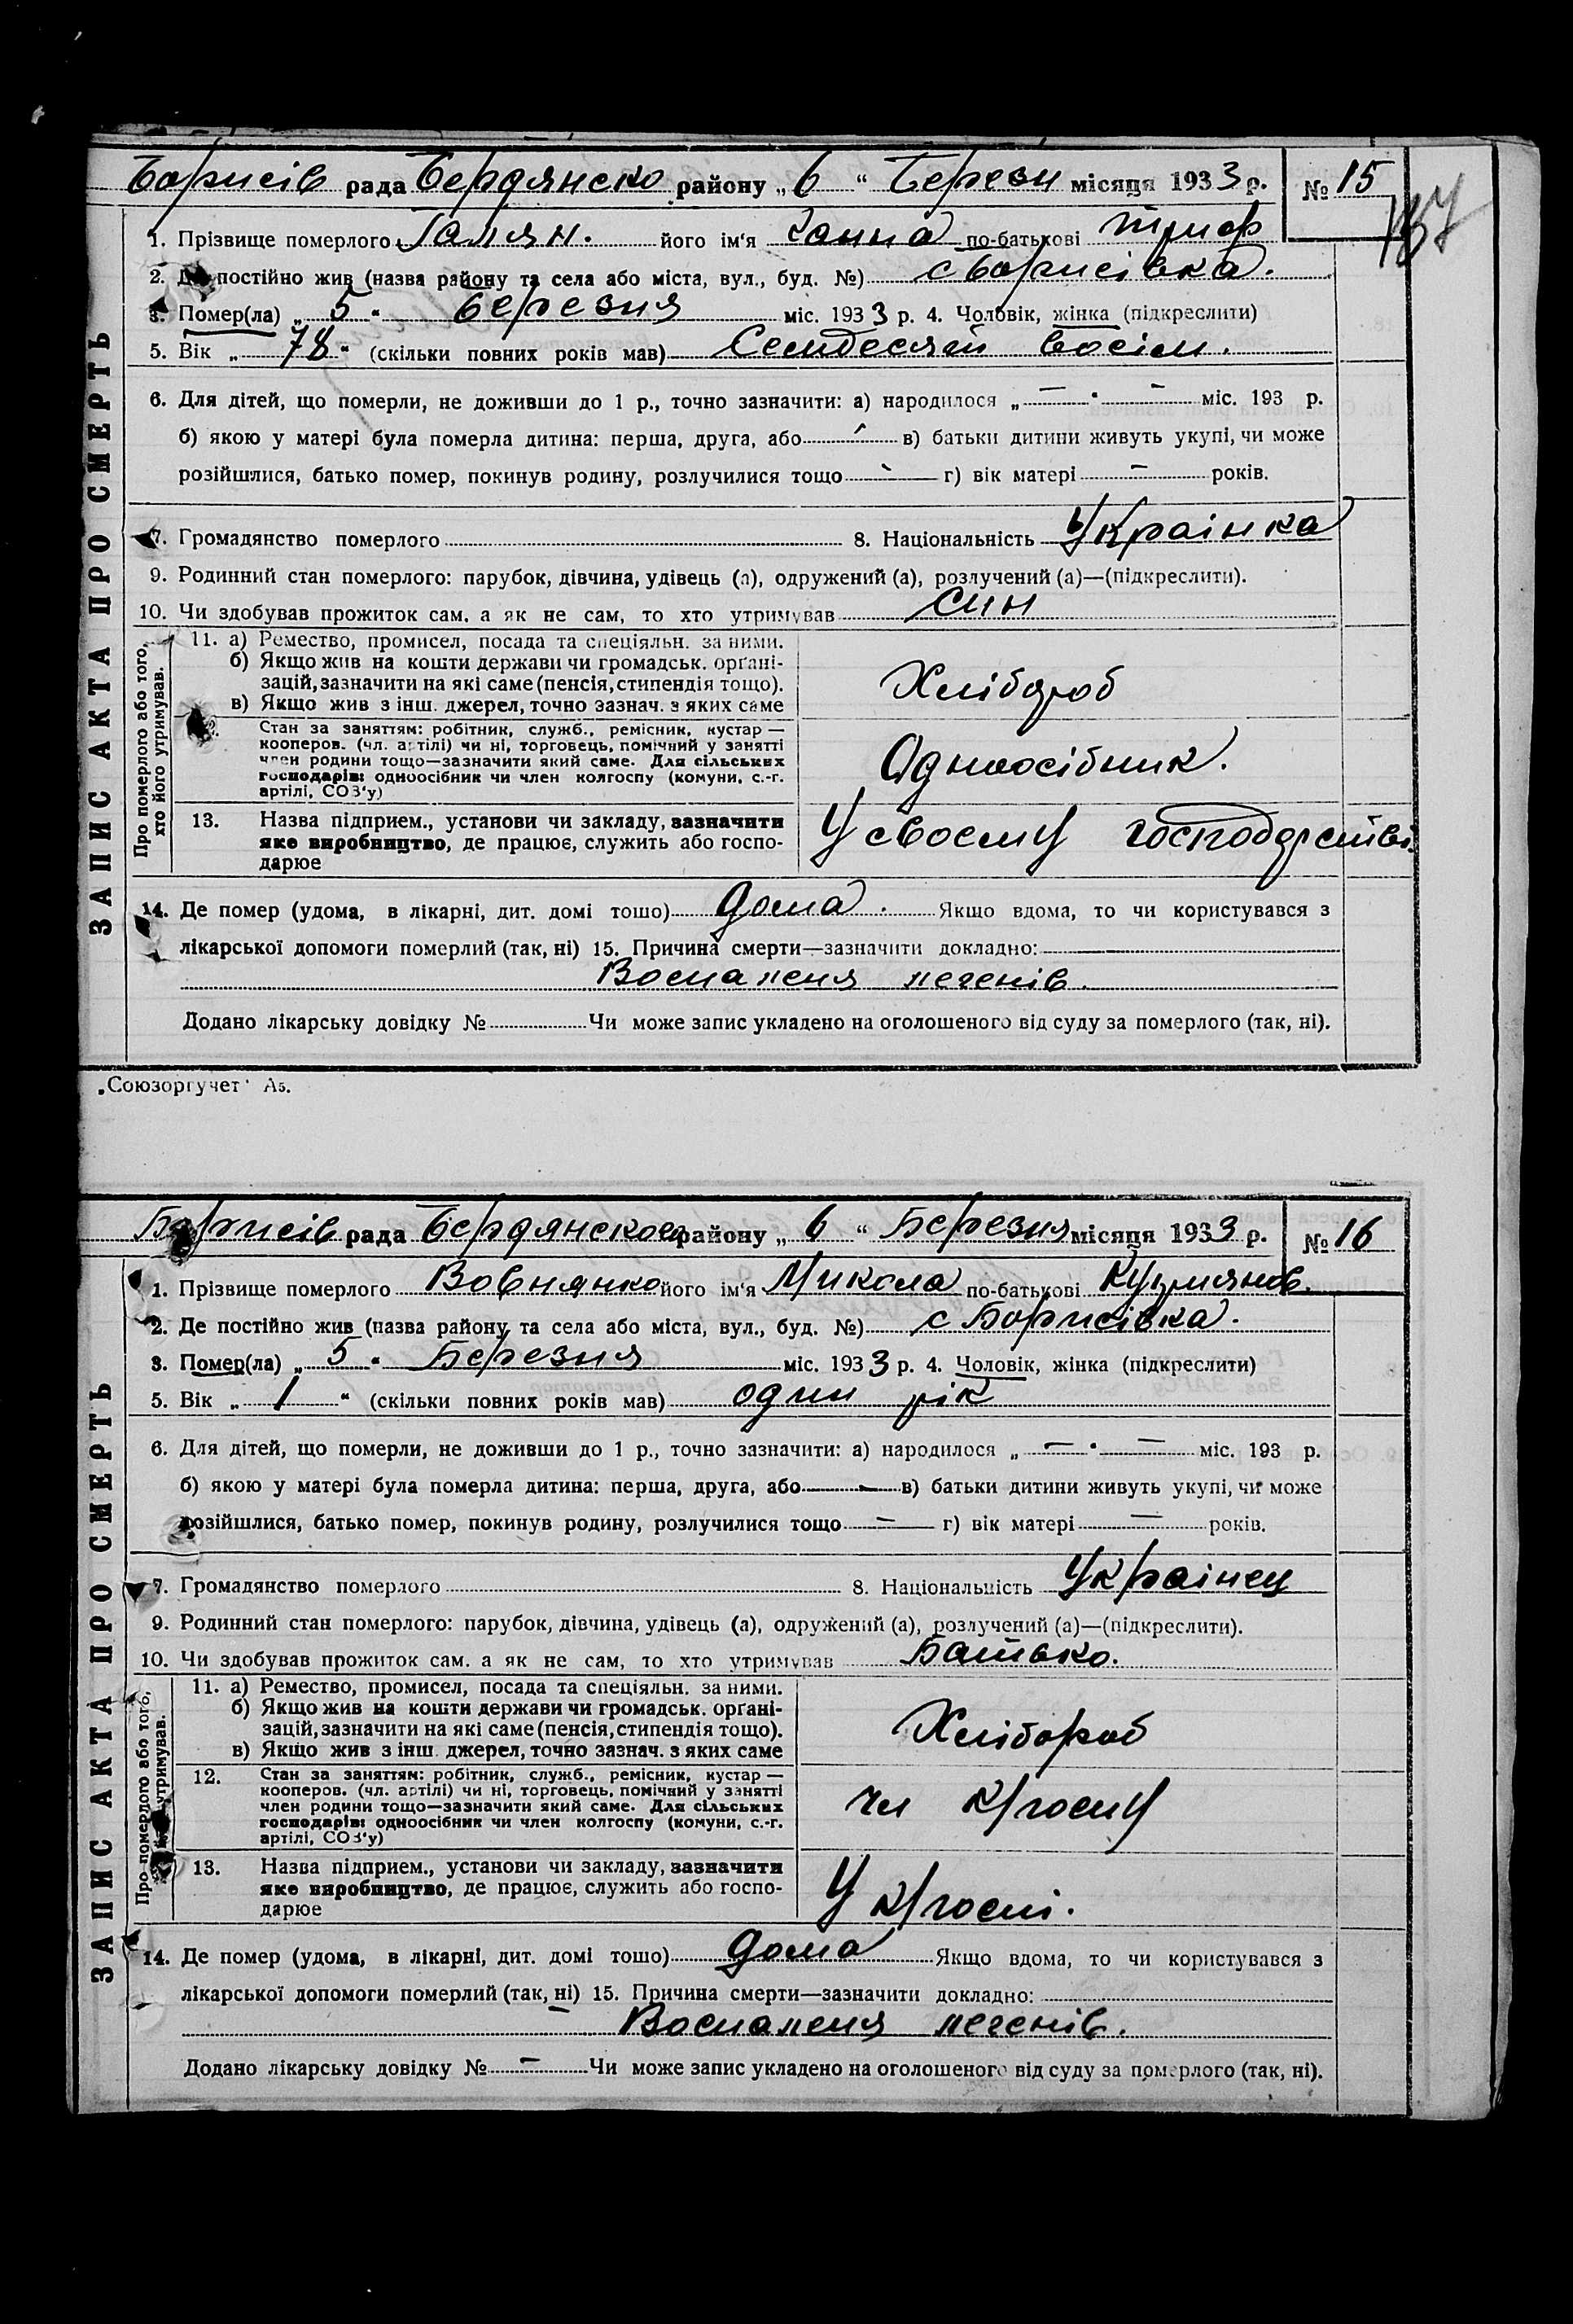 Борисів рада Бердянско району „ 6 “ Березн місяця 1933 р. № 15
157
1. Прізвище померлого Галян. його ім'я Ганна по-батькові Триф
2. Де постійно жив (назва району та села або міста, вул., буд. №) с Борисівка.
3. Помер(ла) „ 5 “ березня міс. 1933 р. 4. Чоловік, жінка (підкреслити)
5. Вік „ 78 “ (скільки повних років мав) Семдесят восім.
6. Для дітей, що померли, не доживши до 1 р., точно зазначити: а) народилося „ — “ — міс. 193 р.
б) якою у матері була померла дитина: перша, друга, або — в) батьки дитини живуть укупі, чи може
розійшлися, батько помер, покинув родину, розлучилися тощо — г) вік матері — років.
7. Громадянство померлого 8. Національність Українка
9. Родинний стан померлого: парубок, дівчина, удівець (а), одружений (а), розлучений (а)—(підкреслити).
10. Чи здобував прожиток сам, а як не сам, то хто утримував син
ЗАПИС АКТА ПРО СМЕРТЬ
Про померлого або того, хто його утримував.
11. а) Ремество, промисел, посада та спеціяльн. за ними.
б) Якщо жив на кошти держави чи громадськ. орґані-
зацій, зазначити на які саме (пенсія, стипендія тощо).
в) Якщо жив з інш. джерел, точно зазнач. з яких саме
Хлібороб
Стан за заняттям: робітник, служб., ремісник, кустар —
кооперов. (чл. артілі) чи ні, торговець, помічний у занятті
член родини тощо—зазначити який саме. Для сільських
господарів: одноосібник чи член колгоспу (комуни, с.-г.
артілі, СОЗ'у)
Одноосібник.
13. Назва підприєм., установи чи закладу, зазначити
яке виробництво, де працює, служить або госпо-
дарює
У своєму господарстві.
14. Де помер (удома, в лікарні, дит. домі тощо) дома. Якщо вдома, то чи користувався з
лікарської допомоги померлий (так, ні) 15. Причина смерти—зазначити докладно:
Воспаленя легенів.
Додано лікарську довідку № Чи може запис укладено на оголошеного від суду за померлого (так, ні).
„Союзоргучет“ А5.
Борисів рада Бердянского району „ 6 “ Березня місяця 1933 р. № 16
1. Прізвище померлого Вовнянко його ім'я Микола по-батькові Кузмянов.
2. Де постійно жив (назва району та села або міста, вул., буд. №) с Борисівка.
3. Помер(ла) „ 5 “ Березня міс. 1933 р. 4. Чоловік, жінка (підкреслити)
5. Вік „ 1 “ (скільки повних років мав) один рік
6. Для дітей, що померли, не доживши до 1 р., точно зазначити: а) народилося „ — “ — міс. 193 р.
б) якою у матері була померла дитина: перша, друга, або — в) батьки дитини живуть укупі, чи може
розійшлися, батько помер, покинув родину, розлучилися тощо — г) вік матері — років.
7. Громадянство померлого 8. Національність Украінец
9. Родинний стан померлого: парубок, дівчина, удівець (а), одружений (а), розлучений (а)—(підкреслити).
10. Чи здобував прожиток сам, а як не сам, то хто утримував Батько.
ЗАПИС АКТА ПРО СМЕРТЬ
Про померлого або того, утримував.
11. а) Ремество, промисел, посада та спеціяльн. за ними.
б) Якщо жив на кошти держави чи громадськ. орґані-
зацій, зазначити на які саме (пенсія, стипендія тощо).
в) Якщо жив з інш. джерел, точно зазнач. з яких саме
Хлібороб
12. Стан за заняттям: робітник, служб., ремісник, кустар —
кооперов. (чл. артілі) чи ні, торговець, помічний у занятті
член родини тощо—зазначити який саме. Для сільських
господарів: одноосібник чи член колгоспу (комуни, с.-г.
артілі, СОЗ'у)
чл к/госпу
13. Назва підприєм., установи чи закладу, зазначити
яке виробництво, де працює, служить або госпо-
дарює
У к/госпі.
14. Де помер (удома, в лікарні, дит. домі тощо) дома Якщо вдома, то чи користувався з
лікарської допомоги померлий (так, ні) 15. Причина смерти—зазначити докладно:
— Воспаленя легенів.
Додано лікарську довідку № — Чи може запис укладено на оголошеного від суду за померлого (так, ні).